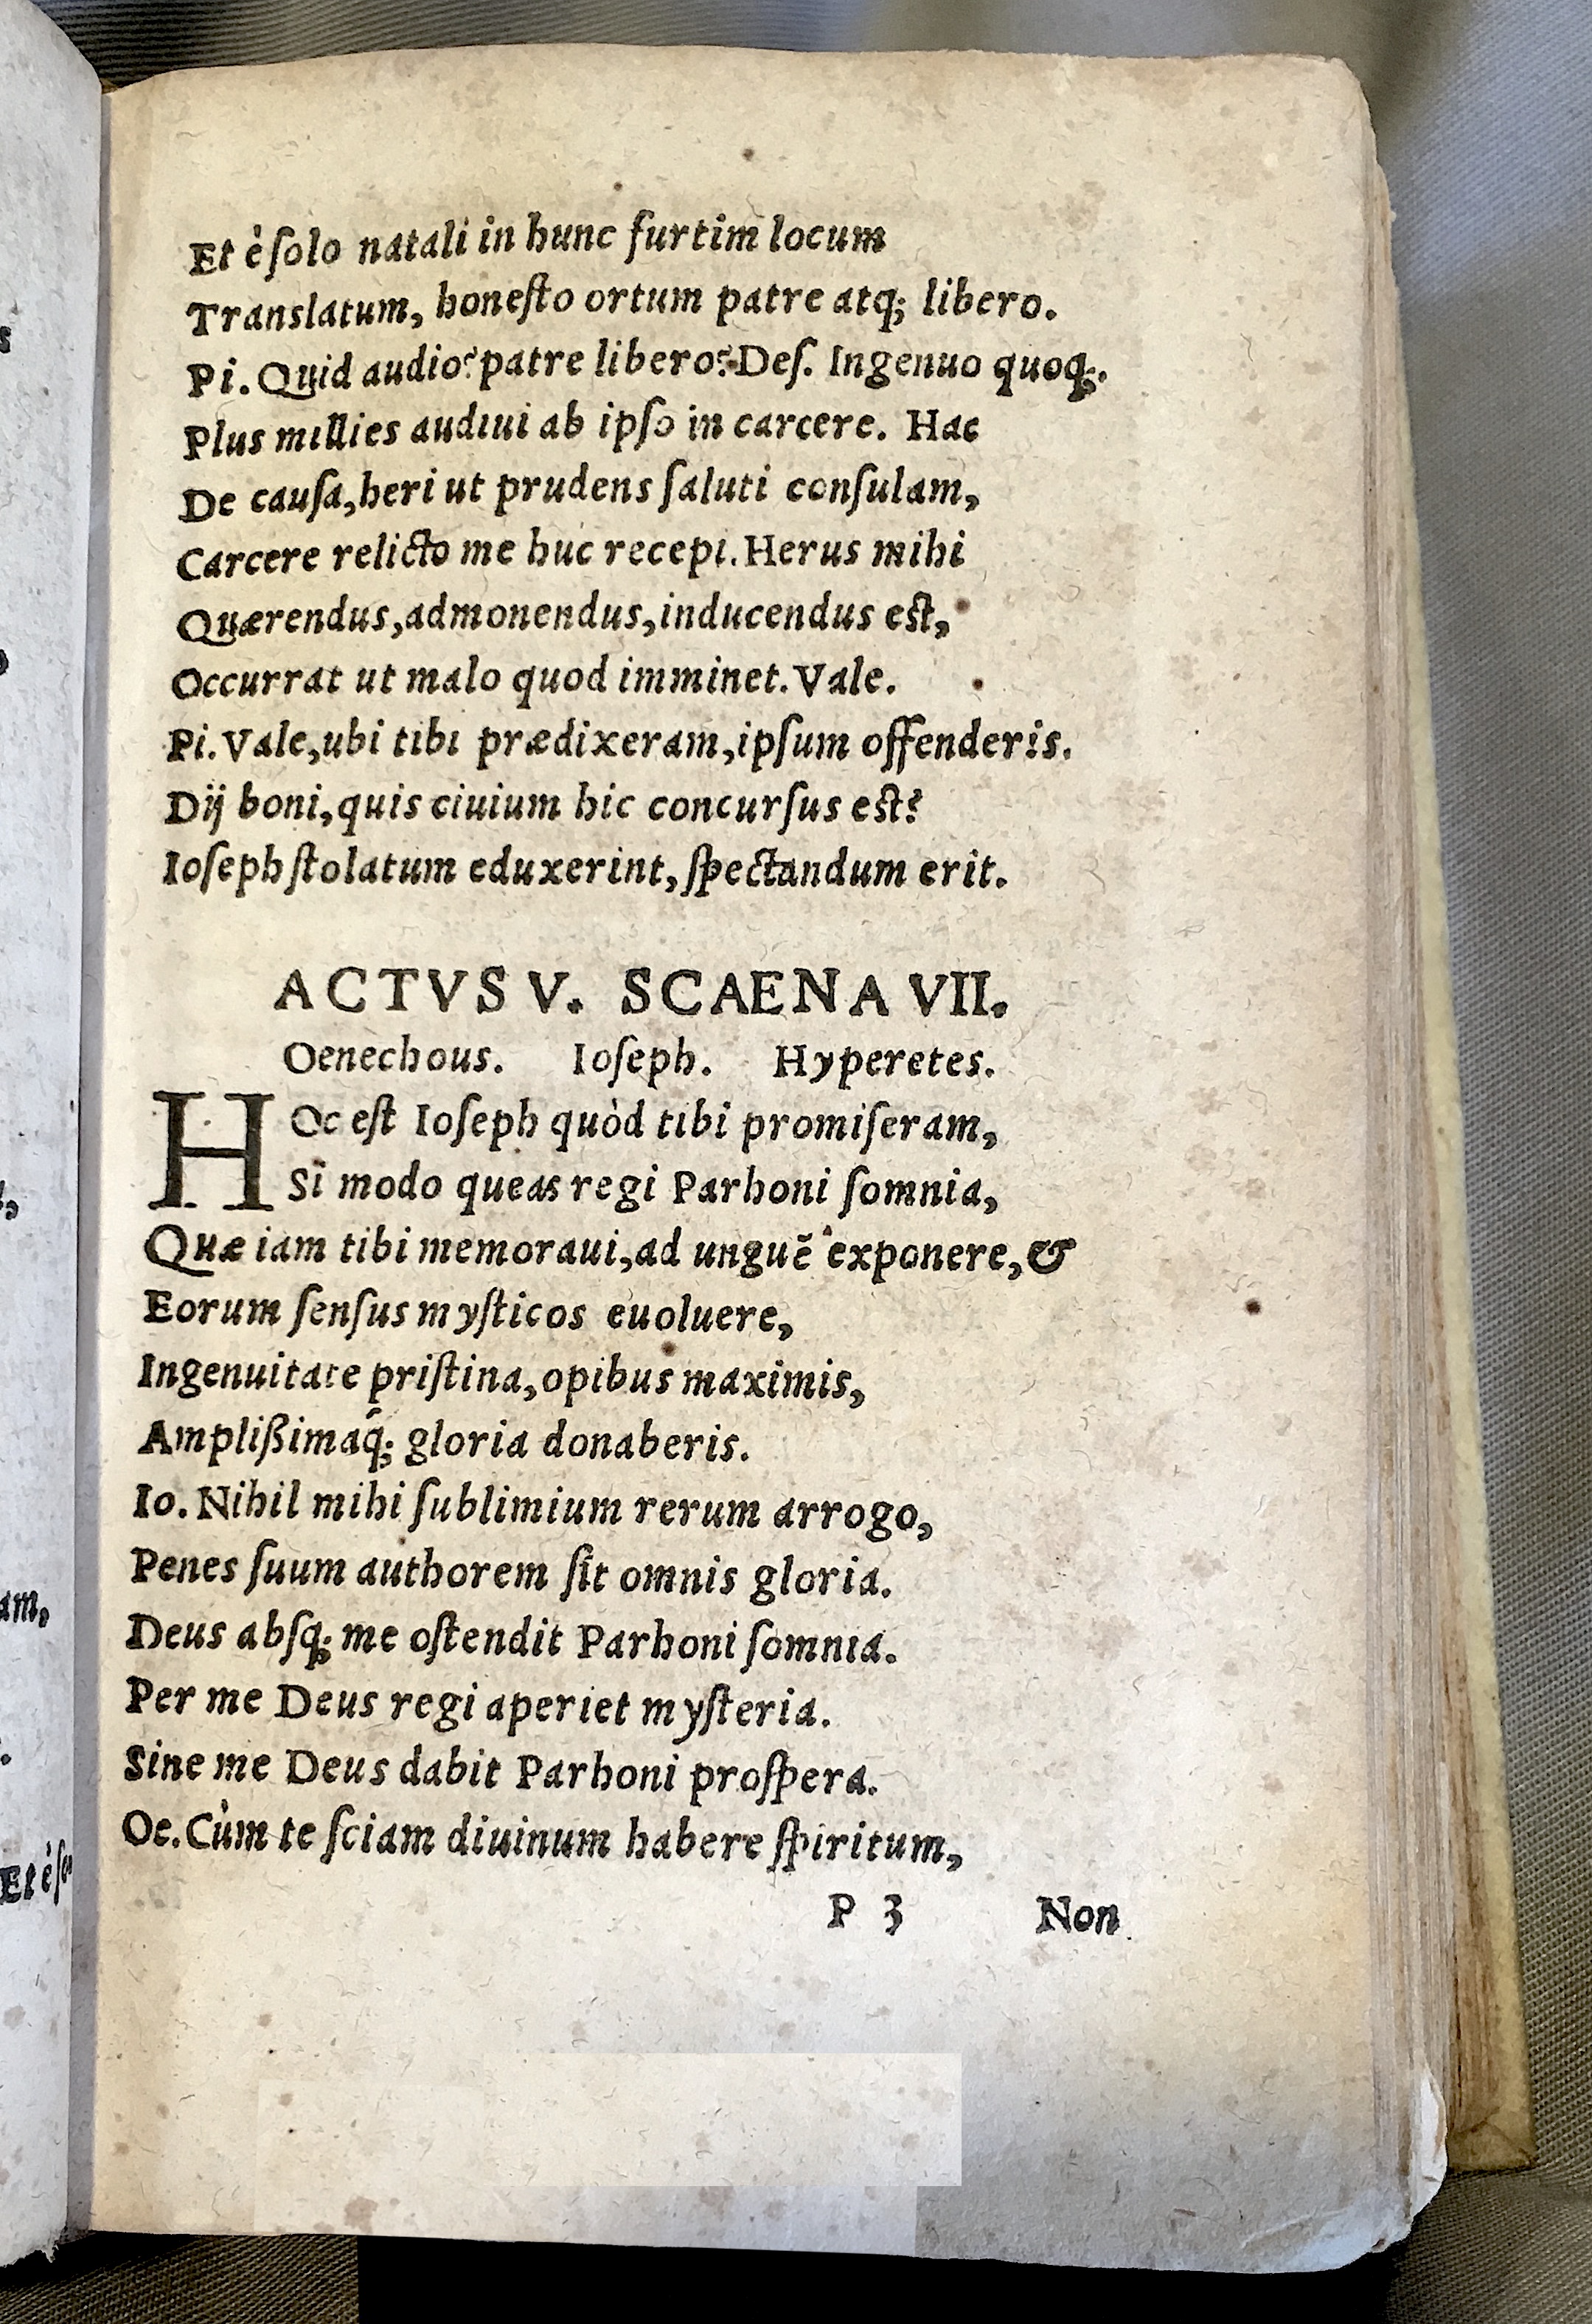 Et è ſolo natali in hunc furtim locum
Translatum, honeſto ortum patre atq; libero.
Pi. Quid audio? patre libero? Deſ. Ingenuo quoq;.
Plus millies audiui ab ipſo in carcere. Hac
De cauſa, heri ut prudens ſaluti conſulam,
Carcere relicto me huc recepi. Herus mihi
Quærendus, admonendus, inducendus eſt,
Occurrat ut malo quod imminet. Vale.
Pi. Vale, ubi tibi prædixeram, ipſum offenderis.
Dij boni, quis ciuium hic concurſus eſt?
Ioſeph ſtolatum eduxerint, ſpectandum erit.
ACTVS V. SCAENA VII.
Oenechous. Ioſeph. Hyperetes.
HOc eſt Ioſeph quòd tibi promiſeram,
Si modo queas regi Parhoni ſomnia,
Quæ iam tibi memoraui, ad unguẽ exponere, &
Eorum ſenſus myſticos euoluere,
Ingenuitate priſtina, opibus maximis,
Amplißimaq́; gloria donaberis.
Io. Nihil mihi ſublimium rerum arrogo,
Penes ſuum authorem ſit omnis gloria.
Deus abſq; me oſtendit Parhoni ſomnia.
Per me Deus regi aperiet myſteria.
Sine me Deus dabit Parhoni proſpera.
Oe. Cùm te ſciam diuinum habere ſpiritum,
P 3 Non